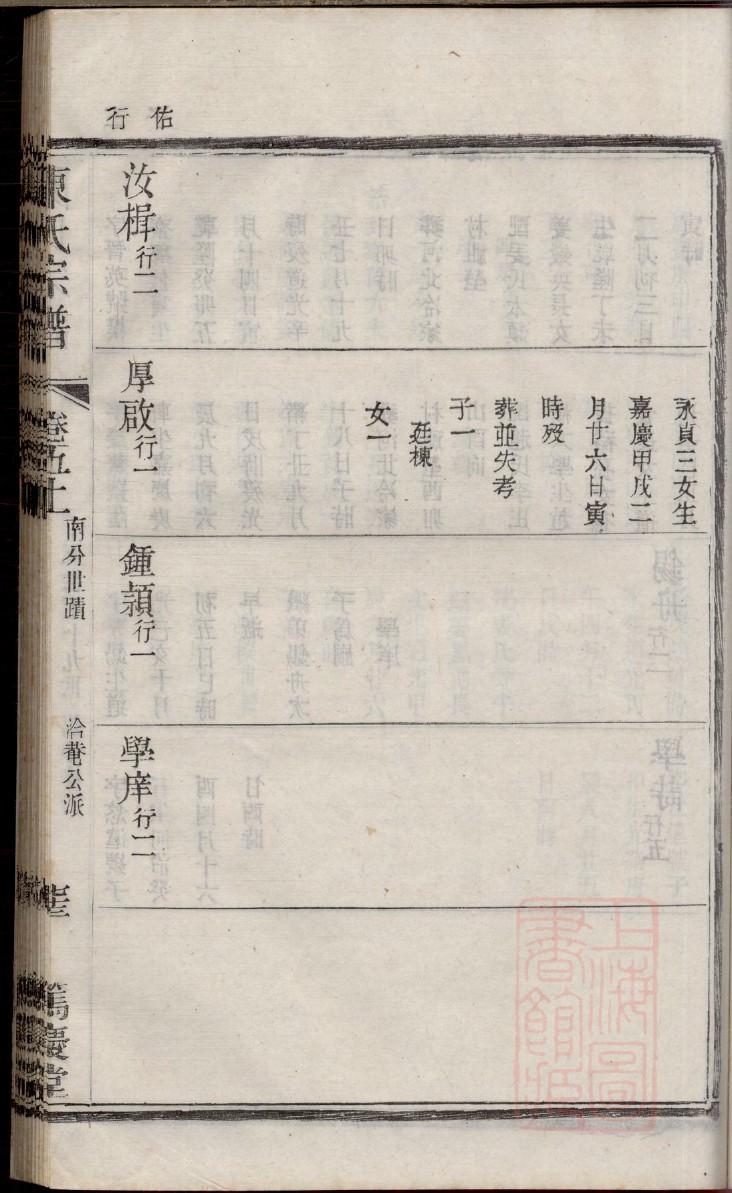 佑行
永貞三女生
嘉慶甲戌二
月廿六日寅
時歿
葬並失考
子一
廷棟
女一
汝楫行二
厚啟行一
鍾潁行一
學庠行二
陳氏宗譜
卷五十
南分世蹟
洽菴公派
篤慶堂
上海圖書館藏